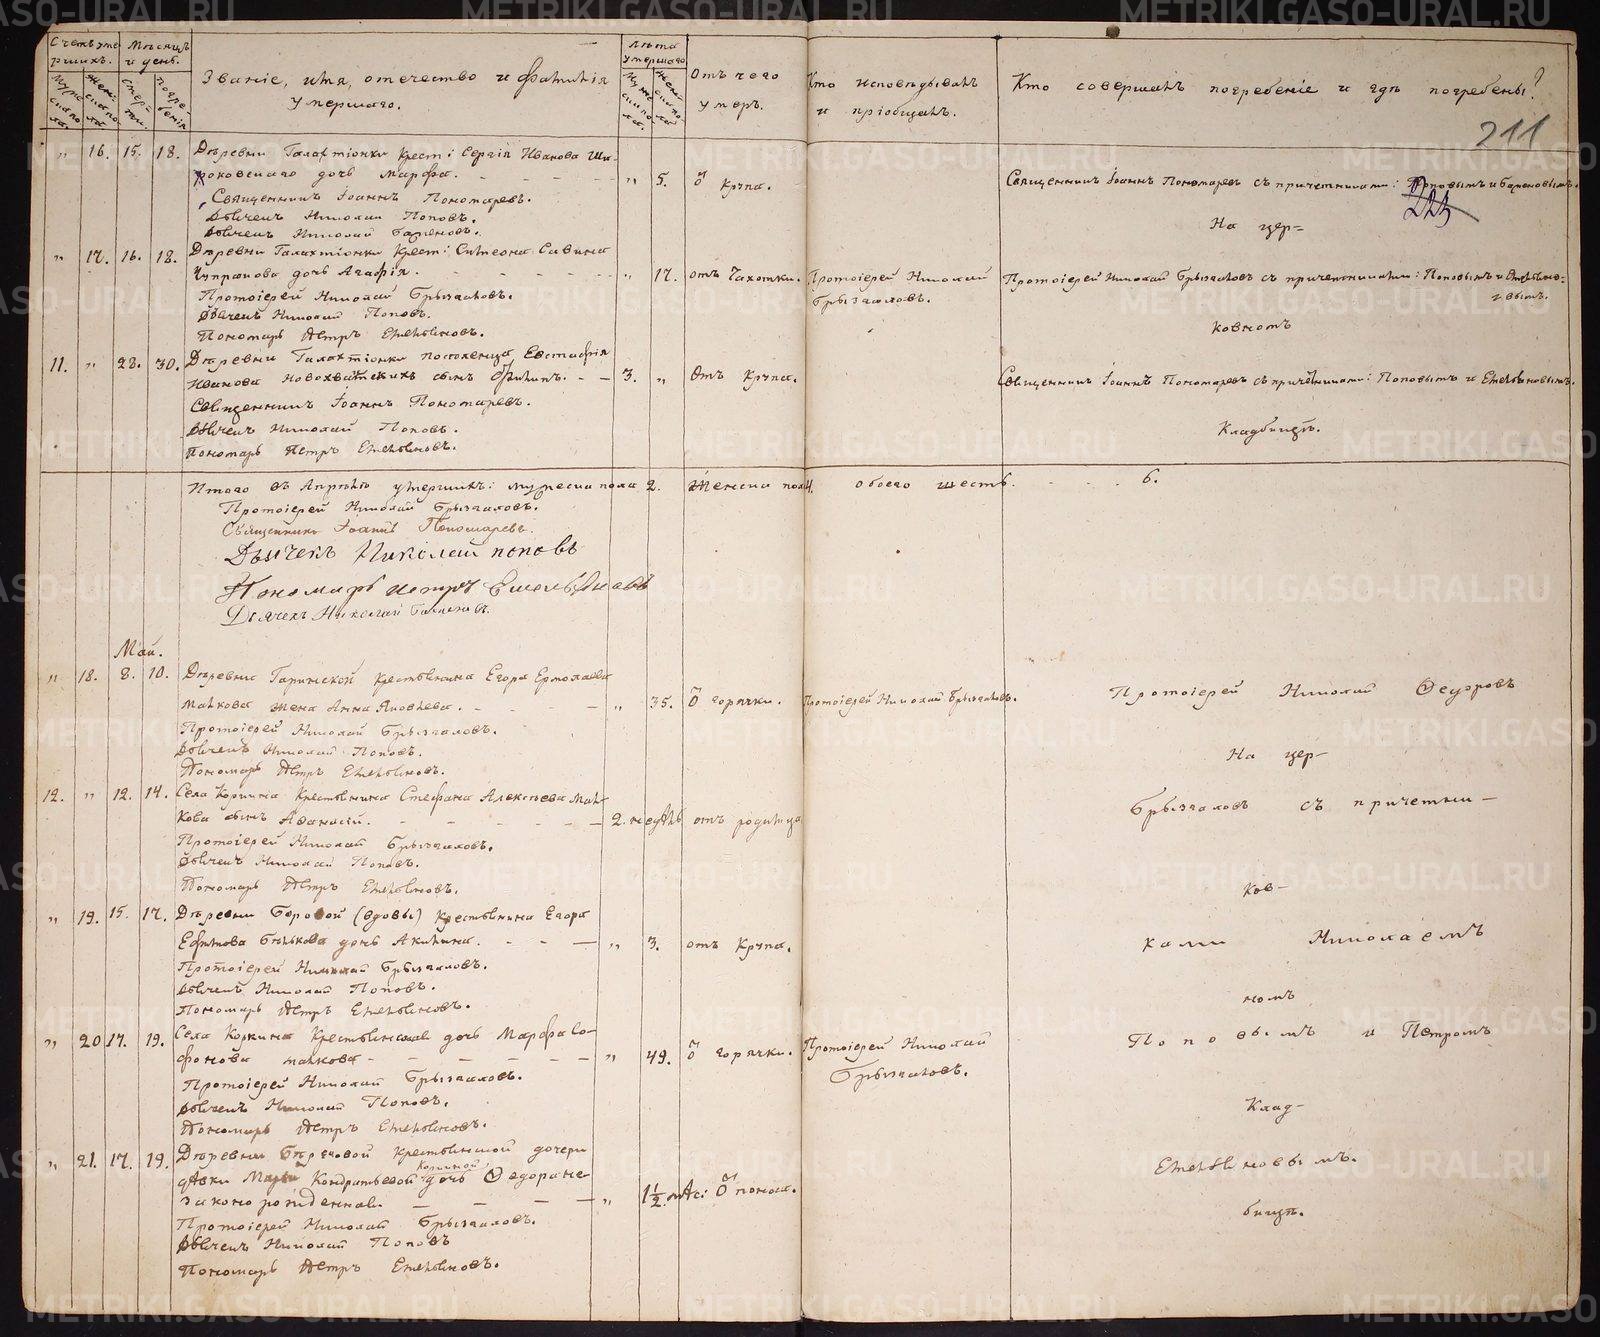 Счетъ уме
ршихъ.
Мѣсяцъ
и день.
Званіе, имя, отечество и фамилія
умершаго.
Лѣта
умершаго
Отъ чего
умеръ.
Кто исповѣдывалъ
и пріобщалъ.
Кто совершалъ погребеніе и гдѣ погребены?
211
„ 16. 15. 18. Деревни Галахтіонки крест: Сергія Иванова Ши-
роковскаго дочь Марфа. „ 5. Ѿ Крупа.
Священникъ Іоаннъ Пономаревъ съ причетниками: Поповымъ и Баженовымъ.
223
Священникъ Іоаннъ Пономаревъ.
Дьячекъ Николай Поповъ.
Дьячекъ Николай Баженовъ.
На цер-
„ 17. 16. 18. Деревни Галахтіонки крест: Симеона Савина
Чупракова дочь Агафія. „ 17. отъ Чахотки. Протоіерей Николай
Брызгаловъ.
Протоіерей Николай Брызгаловъ съ причетниками: Поповымъ и Емельяно-
вымъ.
Протоіерей Николай Брызгаловъ.
Дьячекъ Николай Поповъ.
Пономарь Петръ Емельяновъ.
ковномъ
11. „ 28. 30. Деревни Галахтіонки поселенца Евстафія
Иванова Новохватскихъ сынъ Филипъ. 3. „ Отъ Крупа.
Священникъ Іоаннъ Пономаревъ съ причетниками: Поповымъ и Емельяновымъ.
Священникъ Іоаннъ Пономаревъ.
Дьячекъ Николай Поповъ.
Пономарь Петръ Емельяновъ.
Кладбищѣ.
Итого въ Апрѣлѣ умершихъ: мужеска пола 2. Женска пола 4. обоего шесть. 6.
Протоіерей Николай Брызгаловъ.
Священникъ Іоаннъ Пономаревъ.
Дьячекъ Николай Поповъ
Пономарь Петръ Емельяновъ
Дьячекъ Николай Баженовъ.
Май.
„ 18. 8. 10. Деревни Гаринской крестьянина Егора Ермолаева
Малкова жена Анна Яковлева. „ 35. Ѿ горячки. Протоіерей Николай Брызгаловъ.
Протоіерей Николай Ѳедоровъ
Протоіерей Николай Брызгаловъ.
Дьячекъ Николай Поповъ.
Пономарь Петръ Емельяновъ.
На цер-
12. „ 12. 14. Села Коркина Крестьянина Стефана Алексѣева Мал-
кова сынъ Аѳанасій. 2. недѣль отъ родимца
Брызгаловъ съ причетни-
Протоіерей Николай Брызгаловъ.
Дьячекъ Николай Поповъ.
Пономарь Петръ Емельяновъ.
ков-
„ 19. 15. 17. Деревни Боровой (вдовы) крестьянина Егора
Ефимова Бѣлькова дочь Акилина. „ 3. отъ Крупа.
ками Николаемъ
Протоіерей Николай Брызгаловъ.
Дьячекъ Николай Поповъ.
Пономарь Петръ Емельяновъ.
номъ
„ 20 17. 19. Села Коркина Крестьянская дочь Марфа Со-
фонова Малкова „ 49. Ѿ горячки. Протоіерей Николай
Брызгаловъ.
Поповымъ и Петромъ
Протоіерей Николай Брызгаловъ.
Дьячекъ Николай Поповъ.
Пономарь Петръ Емельяновъ.
Клад-
„ 21. 17. 19. Деревни крестьянской дочери
дѣвки Маріи Кондратьевой дочь Ѳедора не-
законорожденная. „ 1½ мѣс: Ѿ поноса.
Емельяновымъ.
Протоіерей Николай Брызгаловъ.
Дьячекъ Николай Поповъ
Пономарь Петръ Емельяновъ.
бищѣ.
METRIKI.GASO-URAL.RU